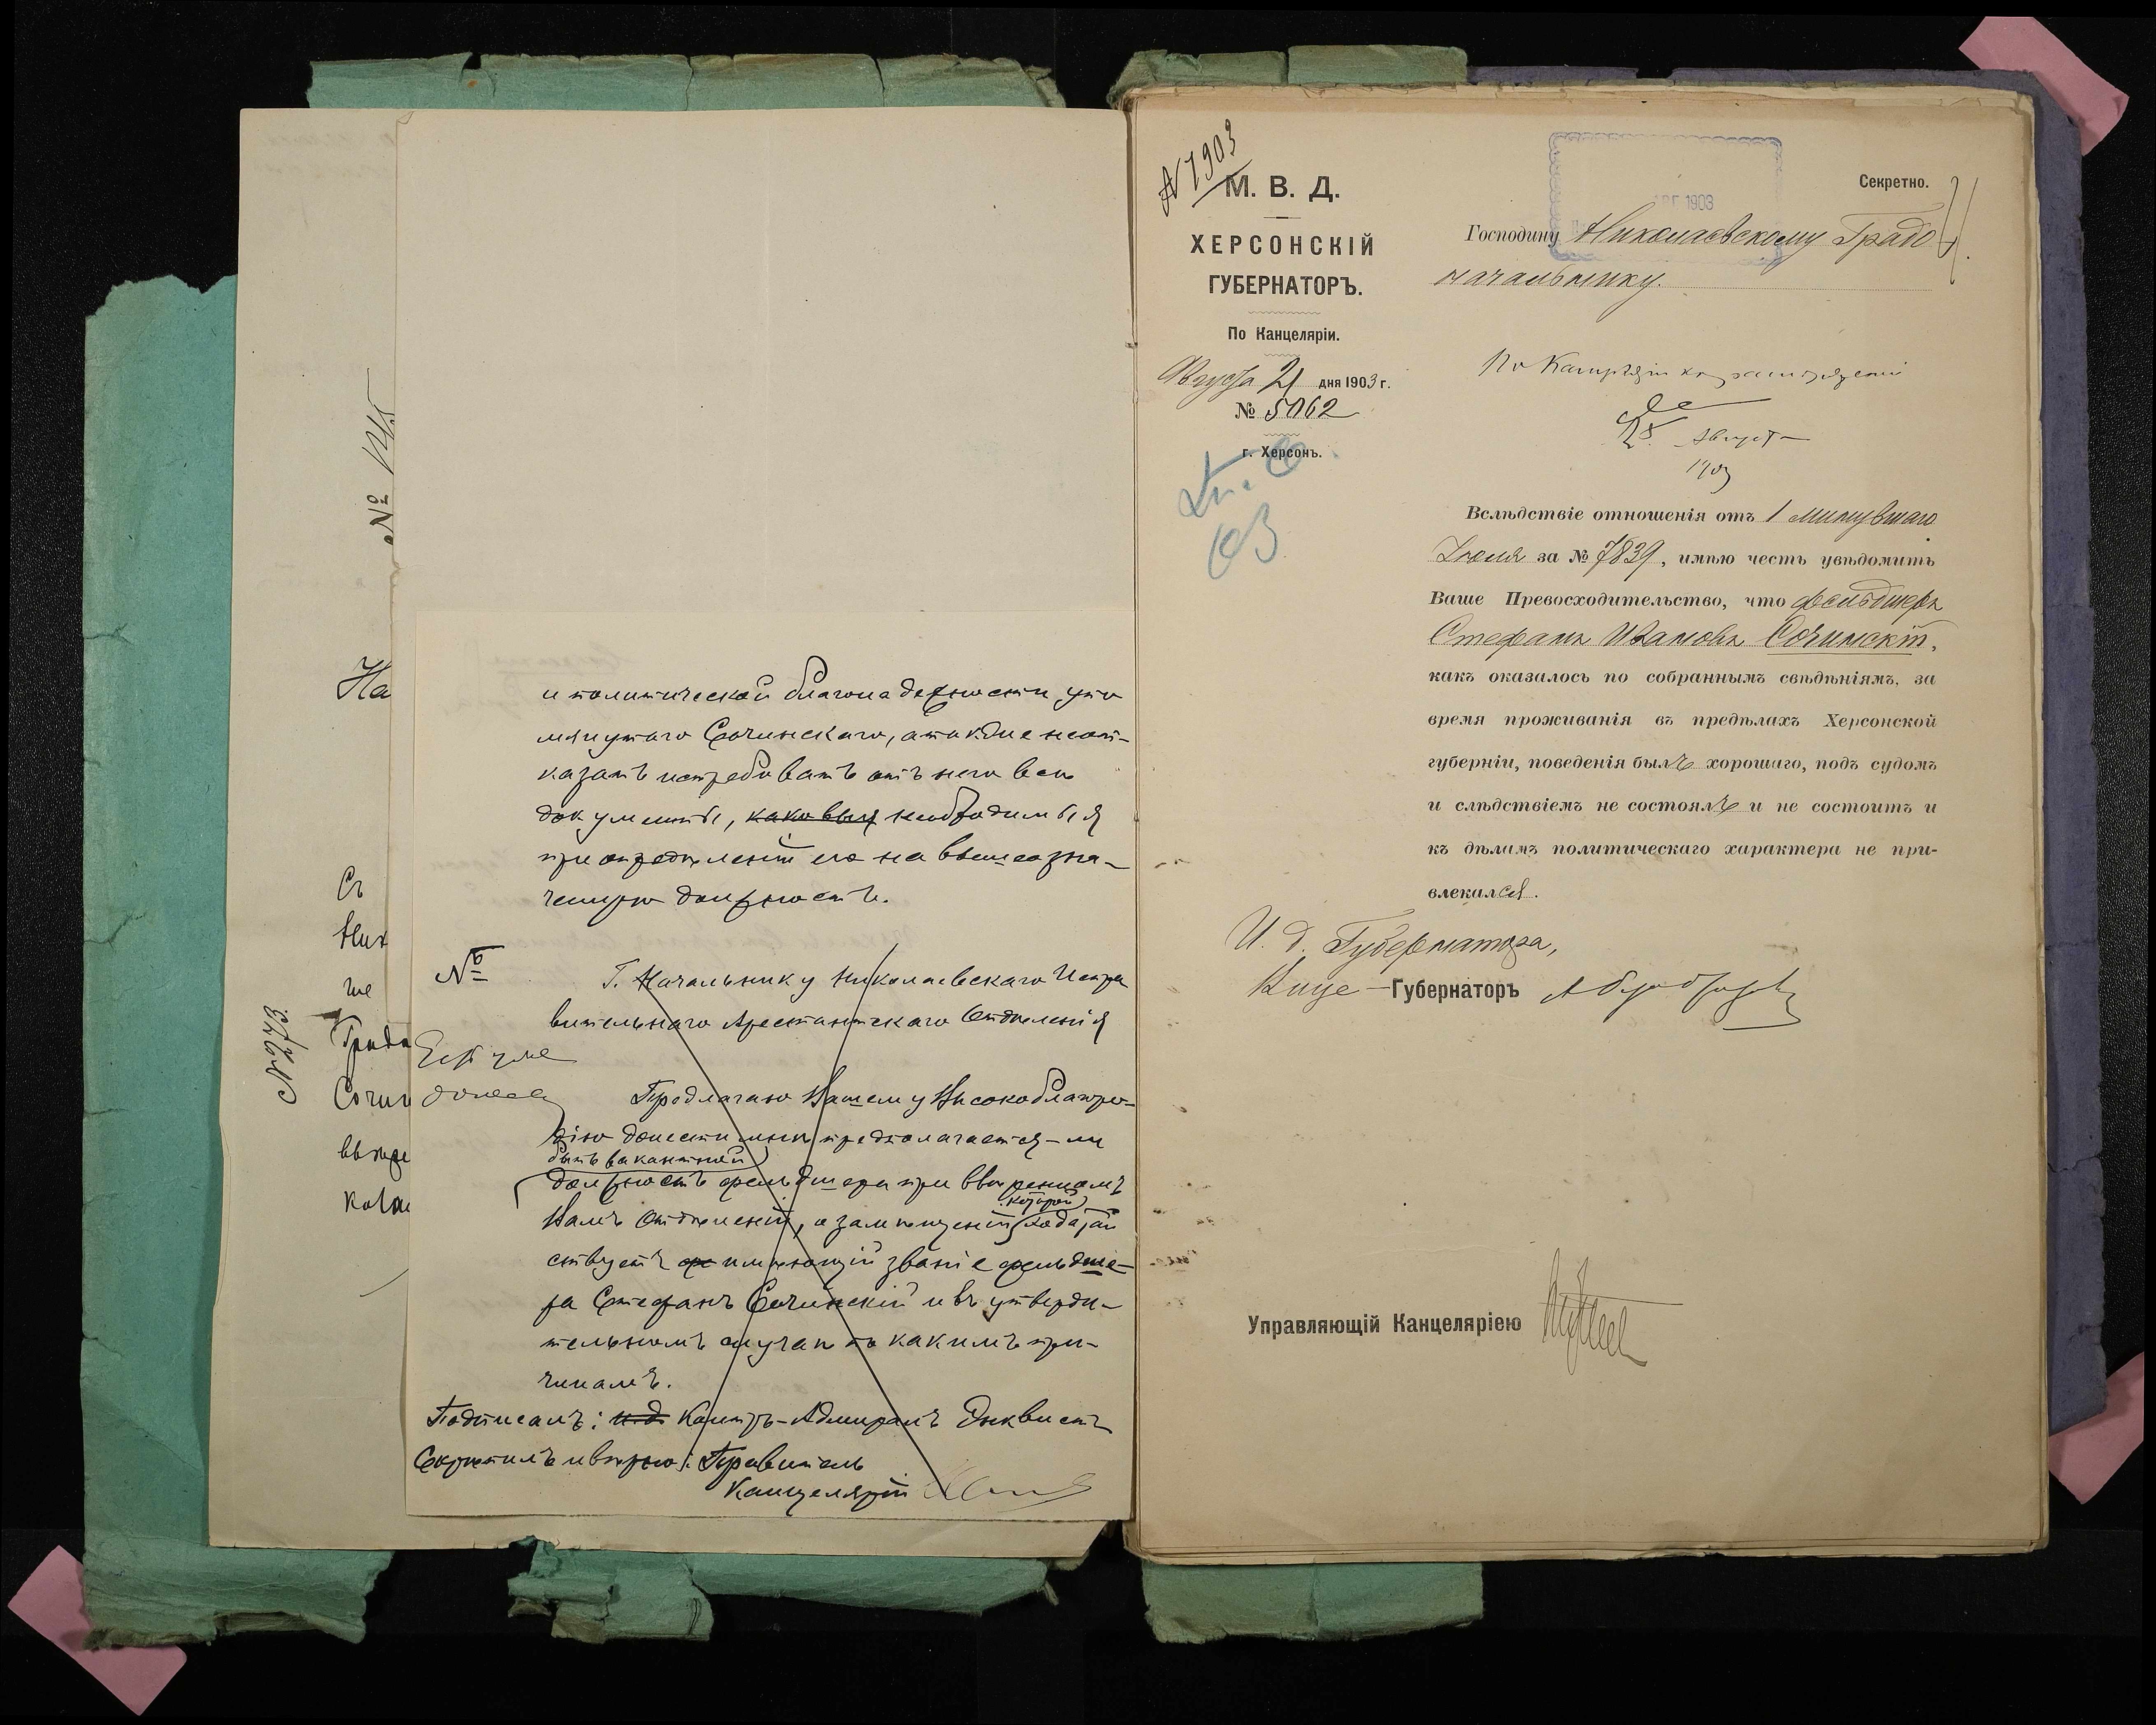 №
На
Съ
Ник
ше
Градо
Сочин
и политической благонадежности упо
мянутаго Сочинскаго, а также не от-
казать истребовать отъ него все
документы, каковыя необходимыя
при опредѣленіи его на вышеозна-
ченную должность.
№
Г. Начальнику Николаевскаго Испра
вительнаго Арестантскаго Отдѣленія
Есть уже
Предлагаю Вашему Высокоблагоро-
дію донести мнѣ предполагается-ли
быть вакантной
должность фельдшера при ввѣренномъ
которой
Вамъ Отдѣленіи, о замѣщеніи ходатай
ствуетъ имѣющій званіе фельдше-
ра Стефанъ Сочинскій и въ утверди-
тельномъ случаѣ по какимъ при-
чинамъ.
Подписалъ: и.д. Контръ-Адмиралъ Энквистъ
Скрѣпилъ и вѣрно: Правитель
Канцеляріи
№ 1903
М. В. Д.
ХЕРСОНСКІЙ
ГУБЕРНАТОРЪ.
По Канцеляріи.
Августа 21 дня 1903 г.
№ 5062
г. Херсонъ.
03
1903
Секретно.
Господину Николаевскому Градо
начальнику.
25 Августа
1903
Вслѣдствіе отношенія отъ 1 минувшаго
Іюля за № 7839, имѣю честь увѣдомить
Ваше Превосходительство, что фельдшеръ
Стефанъ Ивановъ Сочинскій,
какъ оказалось по собраннымъ свѣдѣніямъ, за
время проживанія въ предѣлахъ Херсонской
губерніи, поведенія былъ хорошаго, подъ судомъ
и слѣдствіемъ не состоялъ и не состоитъ и
къ дѣламъ политическаго характера не при-
влекался.
И. д. Губернатора,
Вице-Губернаторъ
Управляющій Канцеляріею